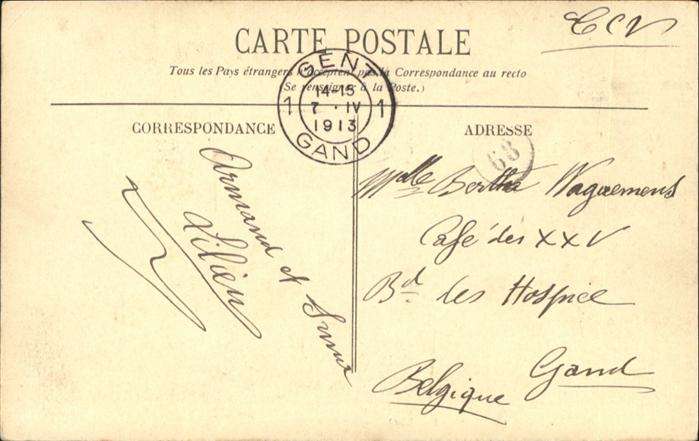 CARTE POSTALE
Tous les Pays étrangers n'acceptent pas la Correspondance au recto
Se renseigner à la Poste.)
GENT
14-15
1 7 · IV 1
1913
GAND
CORRESPONDANCE
Armand et
Lilien
ADRESSE
68
Mlle Berthe Waguemens
Café des XXV
Bd des Hospice
Gand
Belgique